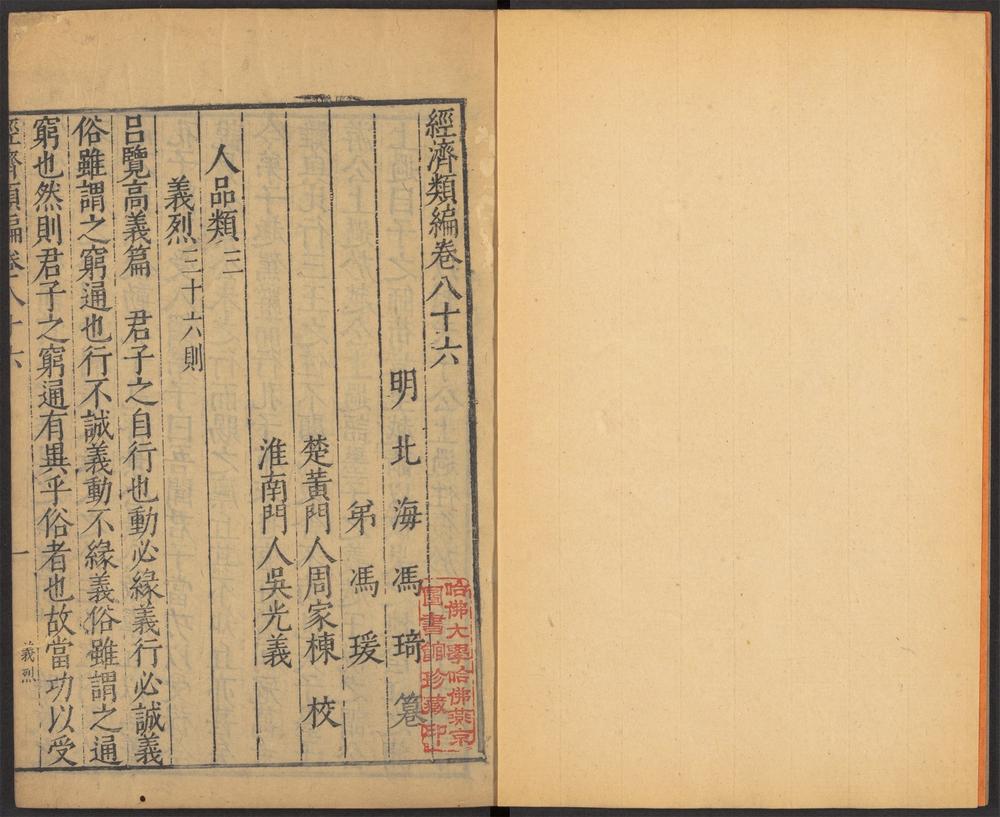 經濟類編卷八十六
明北海馮琦纂
弟馮瑗
楚黃門人周家棟校
淮南門人吳光義
人品類三
義烈三十六則
呂覽高義篇 君子之自行也動必緣義行必誠義
俗雖謂之窮通也行不誠義動不緣義俗雖謂之通
窮也然則君子之窮通有異乎俗者也故當功以受
經濟類編卷八十六
一
義烈
哈佛大學哈佛燕京
圖書館珍藏印